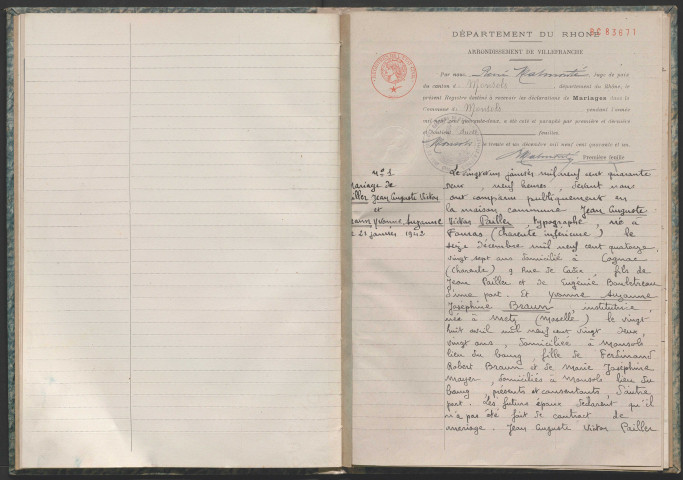 DÉPARTEMENT DU RHÔNE
ARRONDISSEMENT DE VILLEFRANCHE
Par nous, René, Juge de paix
du canton de Monsols, département du Rhône, le
présent Registre destiné à recevoir les déclarations de Mariages dans la
Commune de Monsols, pendant l'année
mil neuf cent quarante-deux, a été coté et paraphé par première et dernière
et contient feuilles.
Monsols, le trente et un décembre mil neuf cent quarante et un.
Première feuille
N° 1
Mariage de
Pailler Jean Auguste Victor
et
Braun Yvonne Suzanne
21 janvier 1942
Le vingt un janvier mil neuf cent quarante
deux, neuf heures, devant nous
ont comparu publiquement en
la maison commune Jean Auguste
Victor Pailler, typographe, né à
Fouras (Charente inférieure) le
seize décembre mil neuf cent quatorze,
vingt sept ans domicilié à Cognac
(Charente) 9 Rue de, fils de
Jean Pailler et de Eugénie
d'une part. Et Yvonne Suzanne
Joséphine Braun, institutrice,
née à Metz (Moselle) le vingt
huit avril mil neuf cent vingt deux,
vingt ans, domiciliée à Monsols
lieu du bourg, fille de Ferdinand
Robert Braun et de Marie Joséphine
Mayer, domiciliés à Monsols lieu du
bourg, présents et consentants, d'autre
part. Les futurs époux déclarent qu'il
n'a pas été fait de contract de
mariage. Jean Auguste Victor Pailler